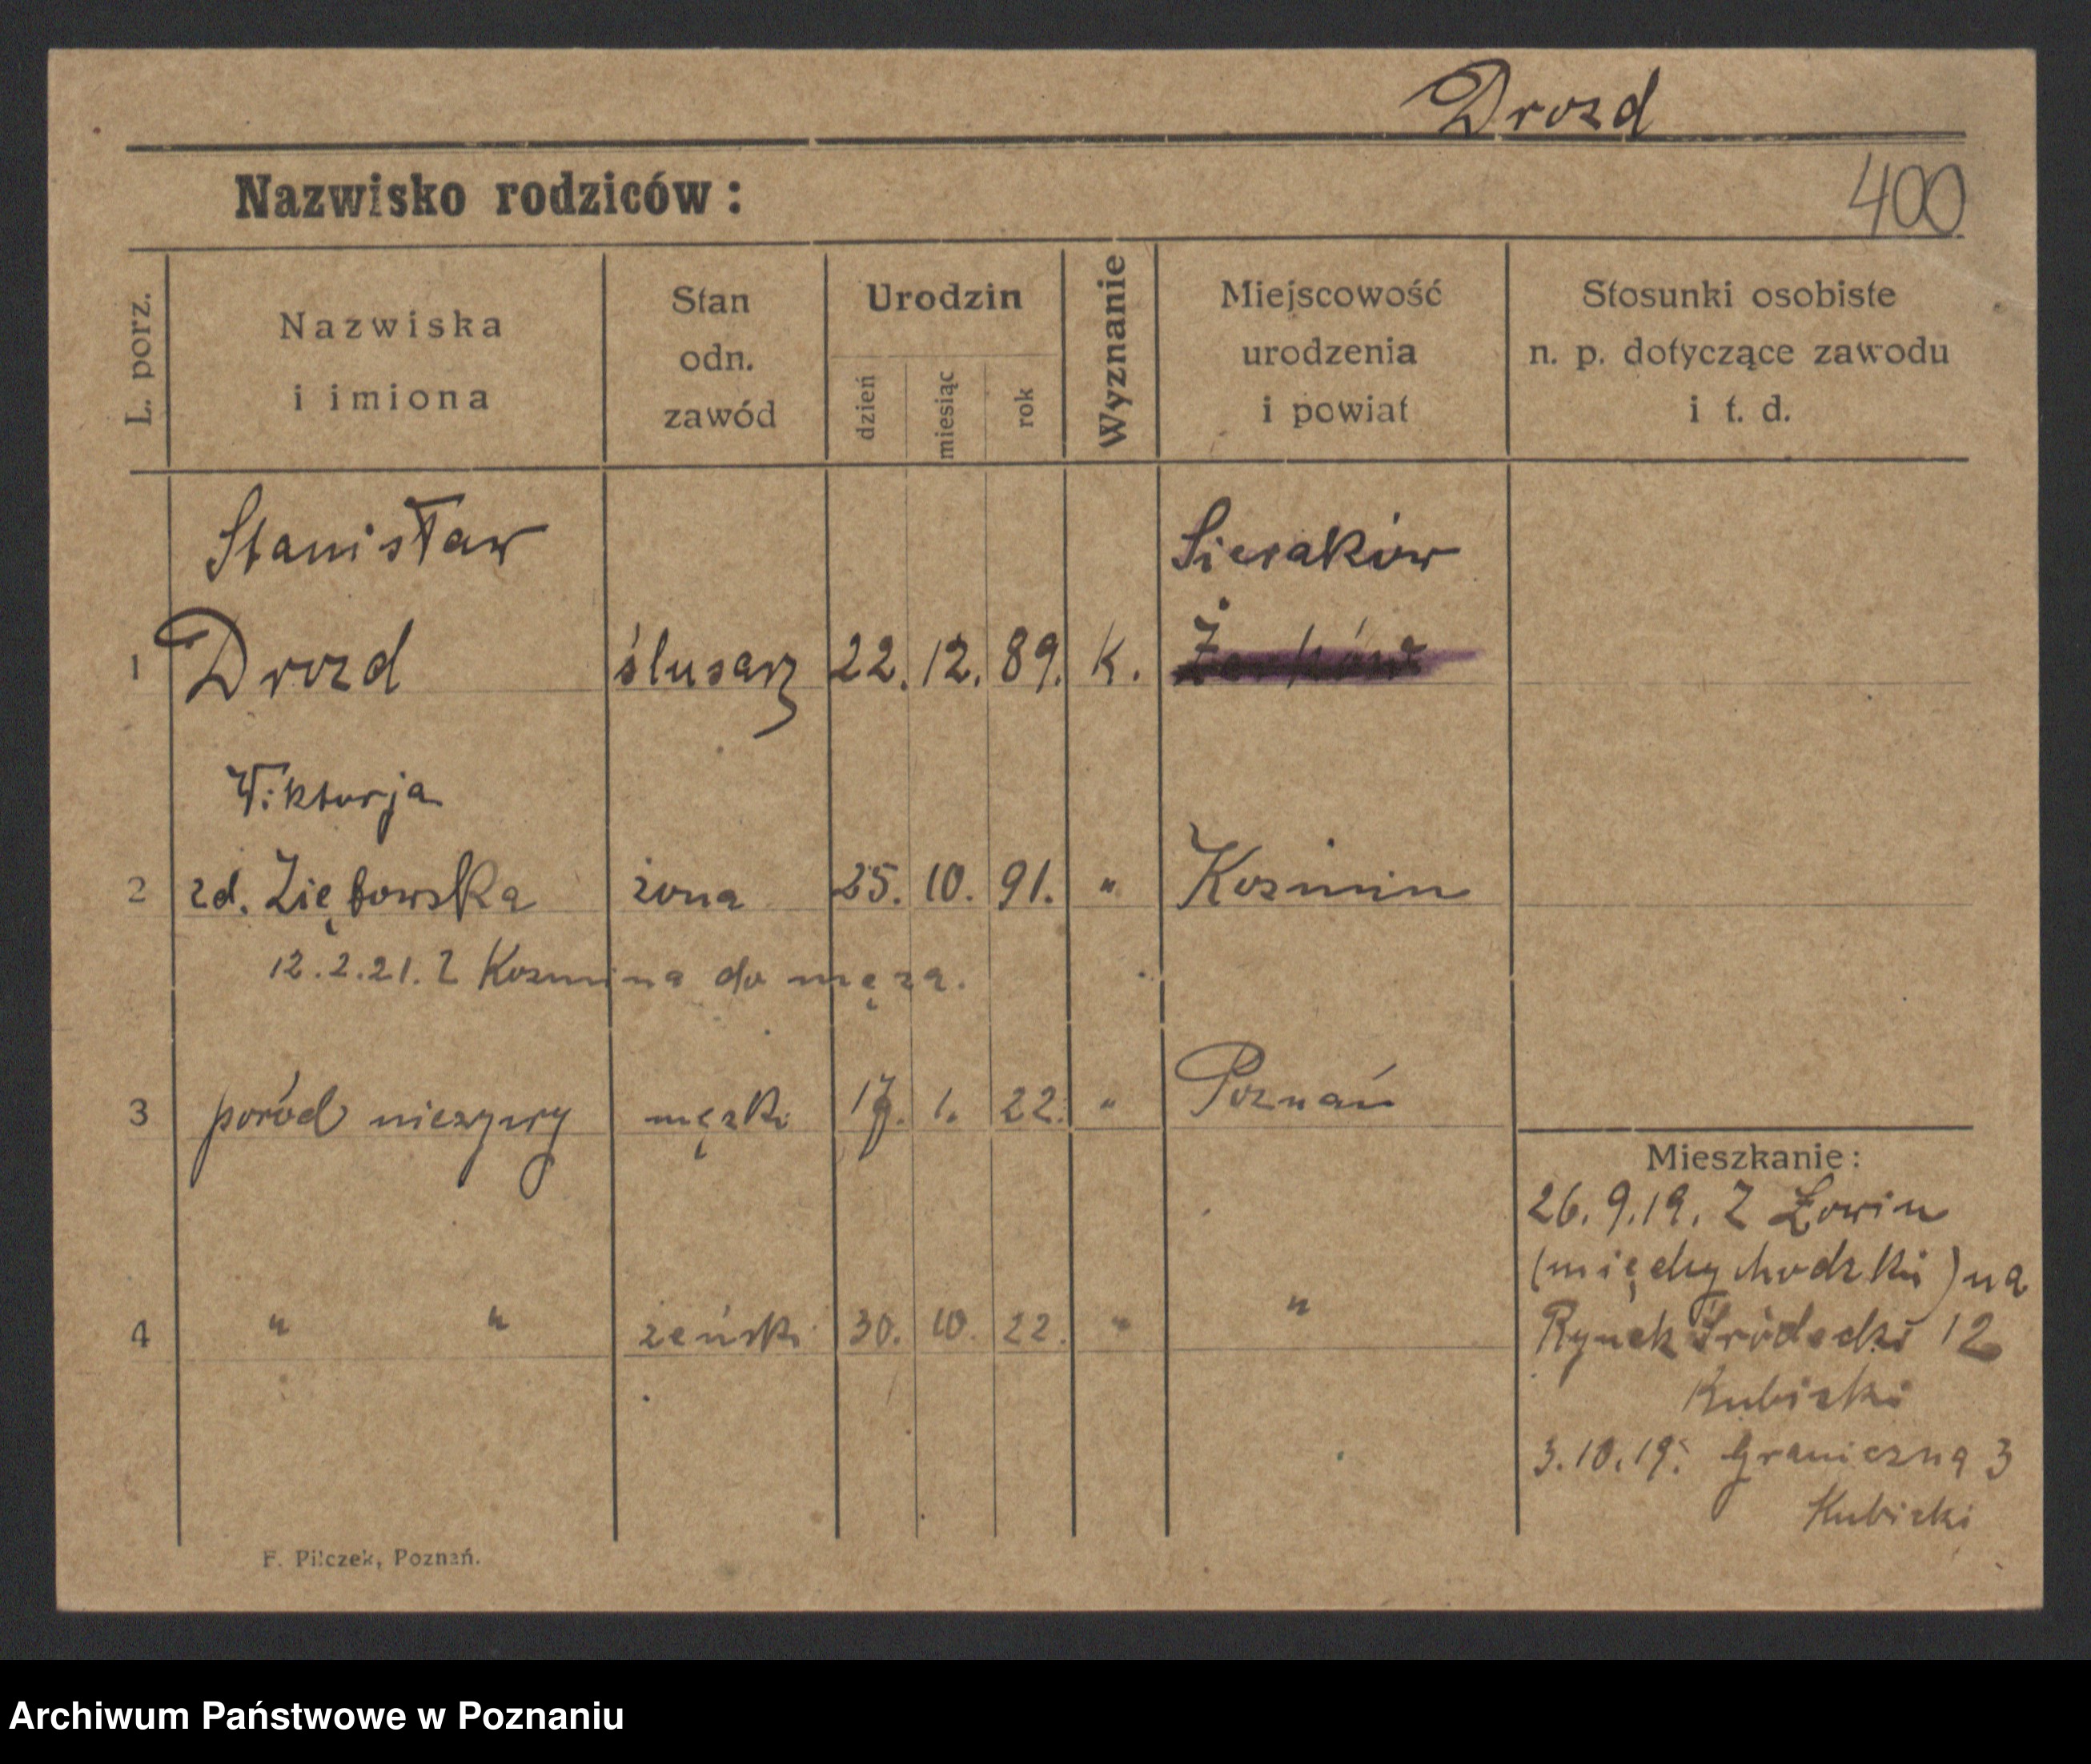 Drozd
Nazwisko rodziców:
400
L. porz.
Nazwiska
i imiona
Stan
odn.
zawód
Urodzin
dzień
miesiąc
rok
Wyznanie
Miejscowość
urodzenia
i powiat
Stosunki osobiste
n. p. dotyczące zawodu
i t. d.
Stanisław Sieraków
1 Drozd ślusarz 22. 12. 89. K.
Wiktorja
2 zd. Ziębowska żona 25. 10. 91. " Kozmin
12.2.21. Z Kozmina do męża.
3 poród nieżywy męzki 17. 1. 22. " Poznań
4 " " żeński 30. 10. 22. " "
Mieszkanie:
26.9.19. Z Łowin
(międzychodzki) na
Rynek Śródecki 12
Kubizki
3.10.19. Graniczna 3
Kubizki
F. Pilczek, Poznań.
Archiwum Państwowe w Poznaniu